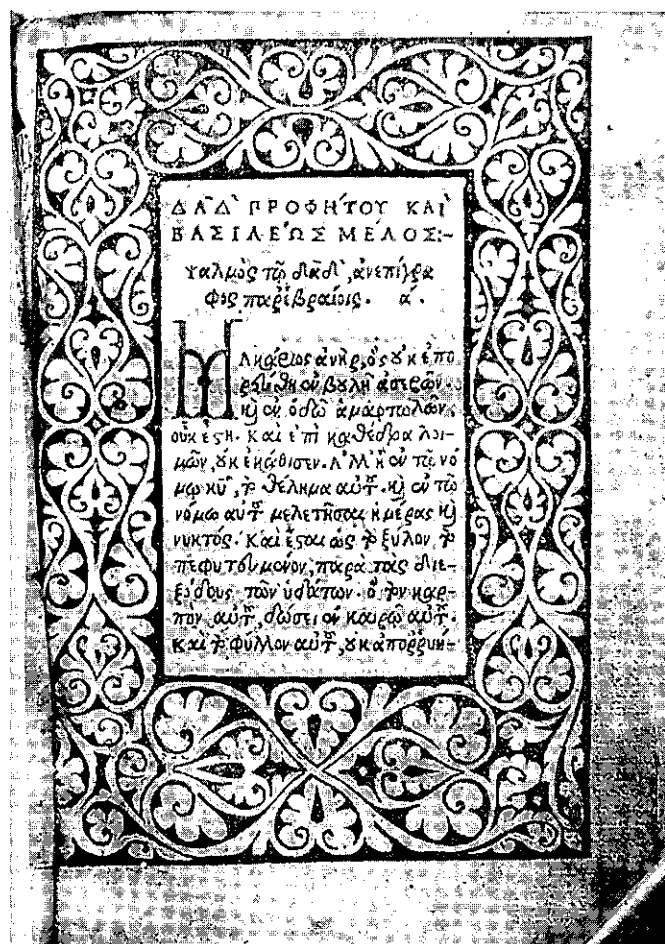 ΔΑ͂Δ ΠΡΟΦΉΤΟΥ ΚΑῚ
ΒΑΣΙΛΈΩΣ ΜΈΛΟΣ:~
Ψαλμὸς τῷ δᾱδ̀, ἀνεπίγρα
φος παρ' ἑβραίοις. ά.
Μακάριος ἀνὴρ, ὃς οὐκ ἐπο
ρεύθη ἐν βουλῇ ἀσεβῶν.
καὶ ἐν ὁδῷ ἁμαρτωλῶν,
οὐκ ἔστη. Καὶ ἐπὶ καθέδρα λοι-
μῶν, οὐκ ἐκάθισεν. Ἀλλ' ἢ ἐν τῷ νό
μῳ κῦ, τὸ θέλημα αὐτοῦ. καὶ ἐν τῷ
νόμῳ αὐτοῦ μελετήσει ἡμέρας καὶ
νυκτός. Καὶ ἔσται ὡς τὸ ξύλον, τὸ
πεφυτευμένον, παρὰ τὰς διε-
ξόδους τῶν ὑδάτων. ὃ τὸν καρ-
πὸν αὐτοῦ, δώσει ἐν καιρῷ αὐτοῦ.
Καὶ τὸ φύλλον αὐτοῦ, οὐκ ἀπορρυή-